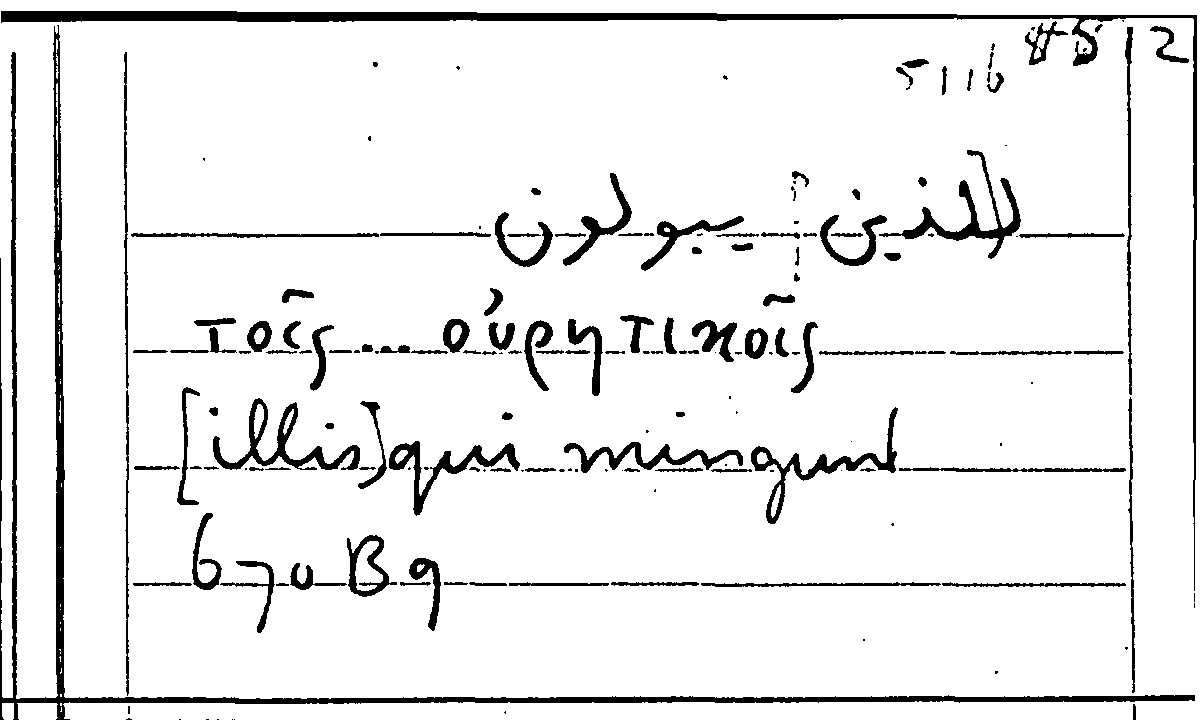 #512
5116
للذين يبولون
τοῖς ... οὐρητικοῖς
[illis] qui mingunt
670 B 9